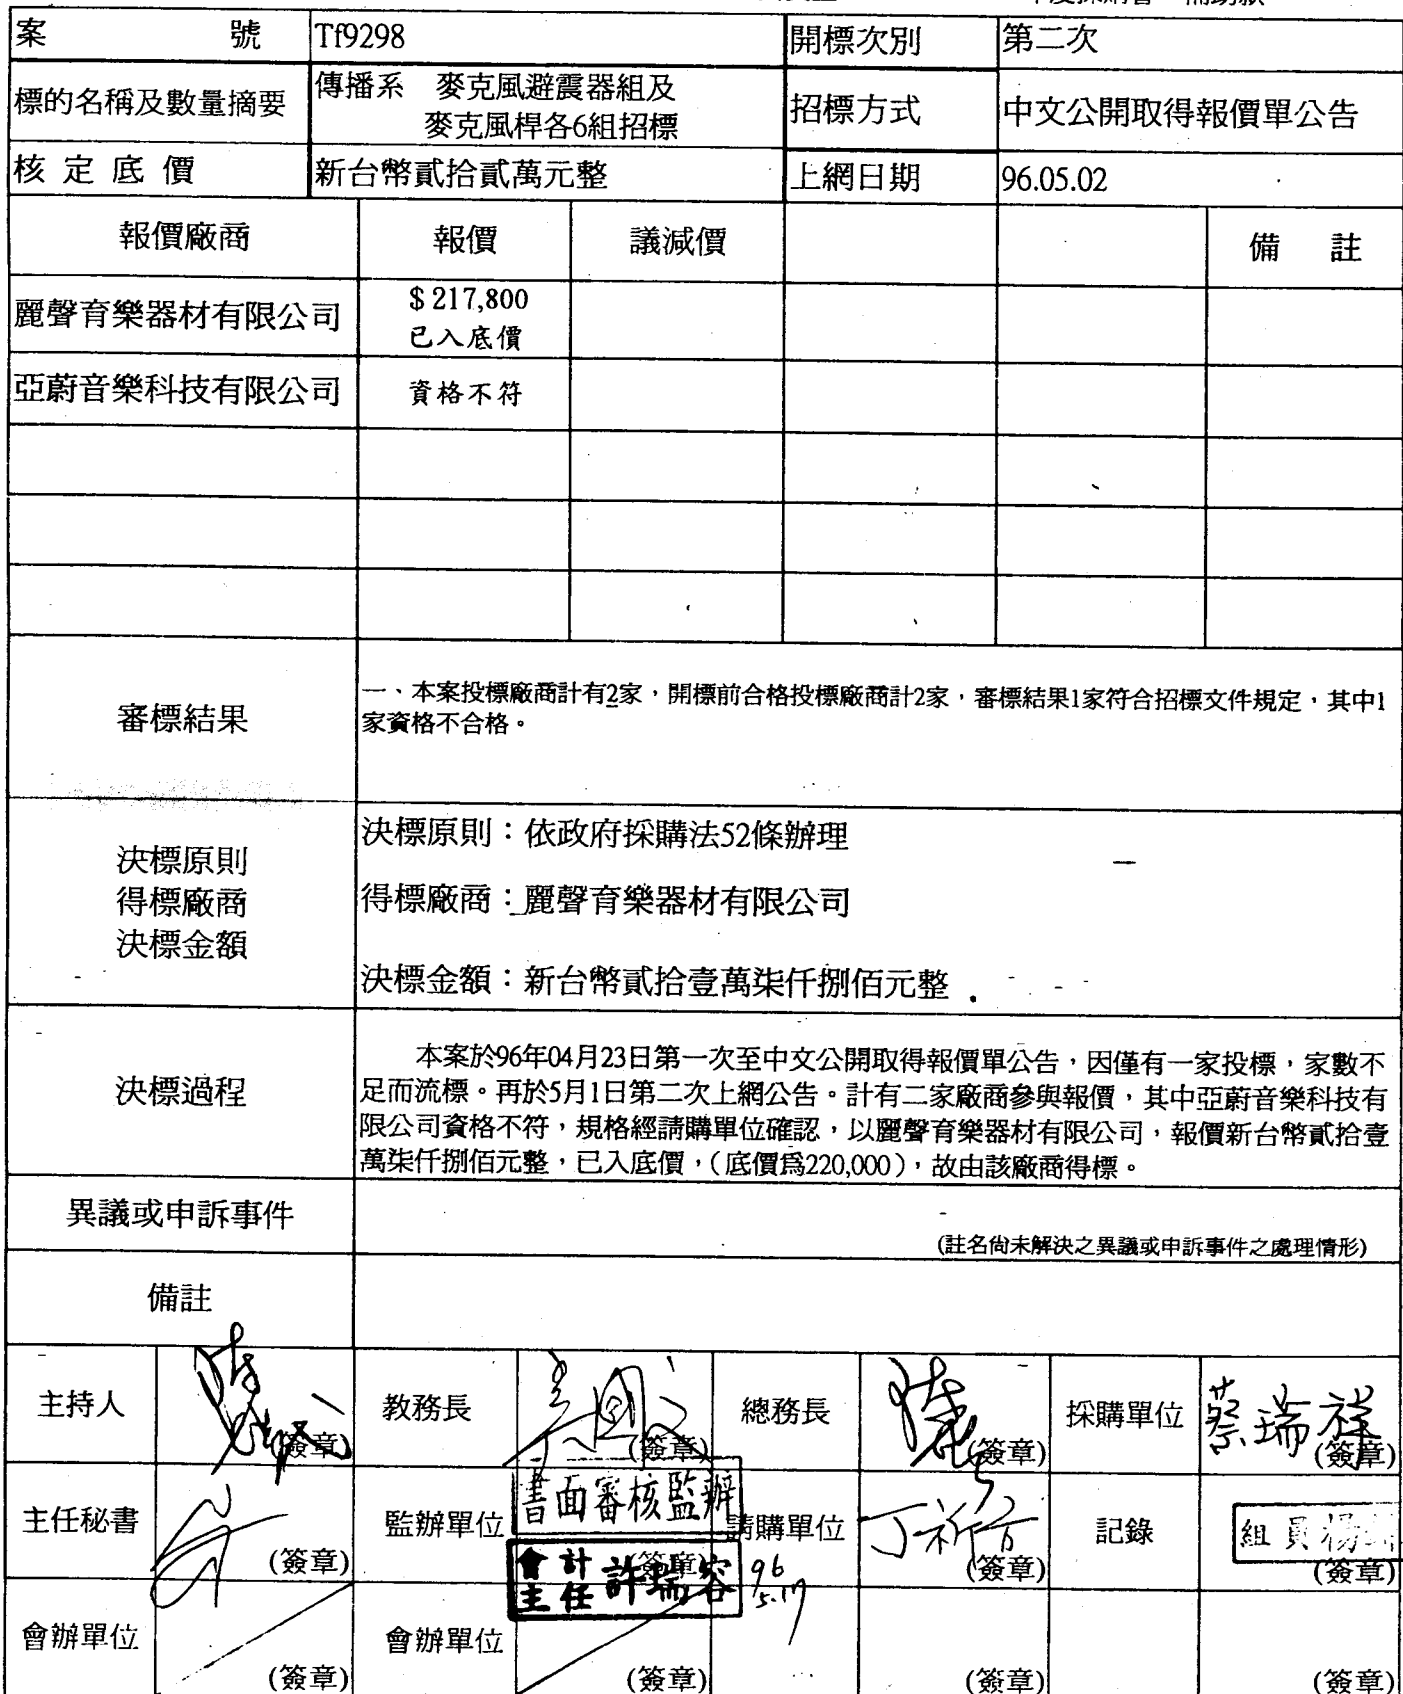 案 號 Tf9298 開標次別 第二次
標的名稱及數量摘要 傳播系 麥克風避震器組及 招標方式 中文公開取得報價單公告
麥克風桿各6組招標
核定底價 新台幣貳拾貳萬元整 上網日期 96.05.02
報價廠商 報價 議減價 備 註
麗聲育樂器材有限公司 $217,800
已入底價
亞蔚音樂科技有限公司 資格不符
審標結果
一、本案投標廠商計有2家，開標前合格投標廠商計2家，審標結果1家符合招標文件規定，其中1
家資格不合格。
決標原則
得標廠商
決標金額
決標原則：依政府採購法52條辦理
得標廠商：麗聲育樂器材有限公司
決標金額：新台幣貳拾壹萬柒仟捌佰元整
決標過程
本案於96年04月23日第一次至中文公開取得報價單公告，因僅有一家投標，家數不
足而流標。再於5月1日第二次上網公告。計有二家廠商參與報價，其中亞蔚音樂科技有
限公司資格不符，規格經請購單位確認，以麗聲育樂器材有限公司，報價新台幣貳拾壹
萬柒仟捌佰元整，已入底價，（底價為220,000），故由該廠商得標。
異議或申訴事件
(註名尚未解決之異議或申訴事件之處理情形)
備註
主持人 (簽章) 教務長 (簽章) 總務長 (簽章) 採購單位 蔡瑞祥 (簽章)
主任秘書 (簽章) 監辦單位 書面審核監辦 (簽章) 請購單位 (簽章) 記錄 組員楊 (簽章)
會計主任 許瑞容 96 5.17
會辦單位 (簽章) 會辦單位 (簽章) (簽章) (簽章)